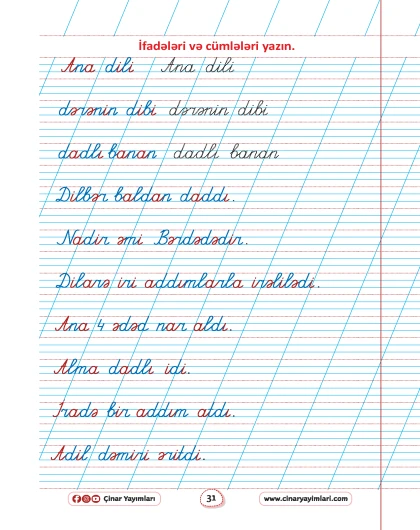 İfadələri və cümlələri yazın.
Ana dili Ana dili
dərənin dibi dərənin dibi
dadlı banan dadlı banan
Dilbər baldan daddı.
Nadir əmi Bərdədədir.
Dilarə iri addımlarla irəlilədi.
Ana 4 ədəd nar aldı.
Alma dadlı idi.
İradə bir addım aldı.
Adil dəmiri əritdi.
Çinar Yayımları 31 www.cinaryayimlari.com